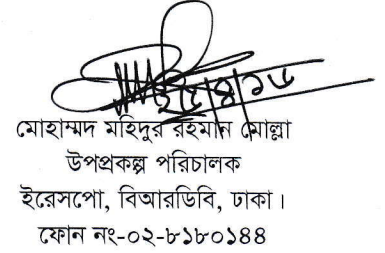 মোহাম্মদ মহিদুর রহমান মোল্লা
উপপ্রকল্প পরিচালক
ইরেসপো, বিআরডিবি, ঢাকা।
ফোন নং-০২-৮১৮০১৪৪